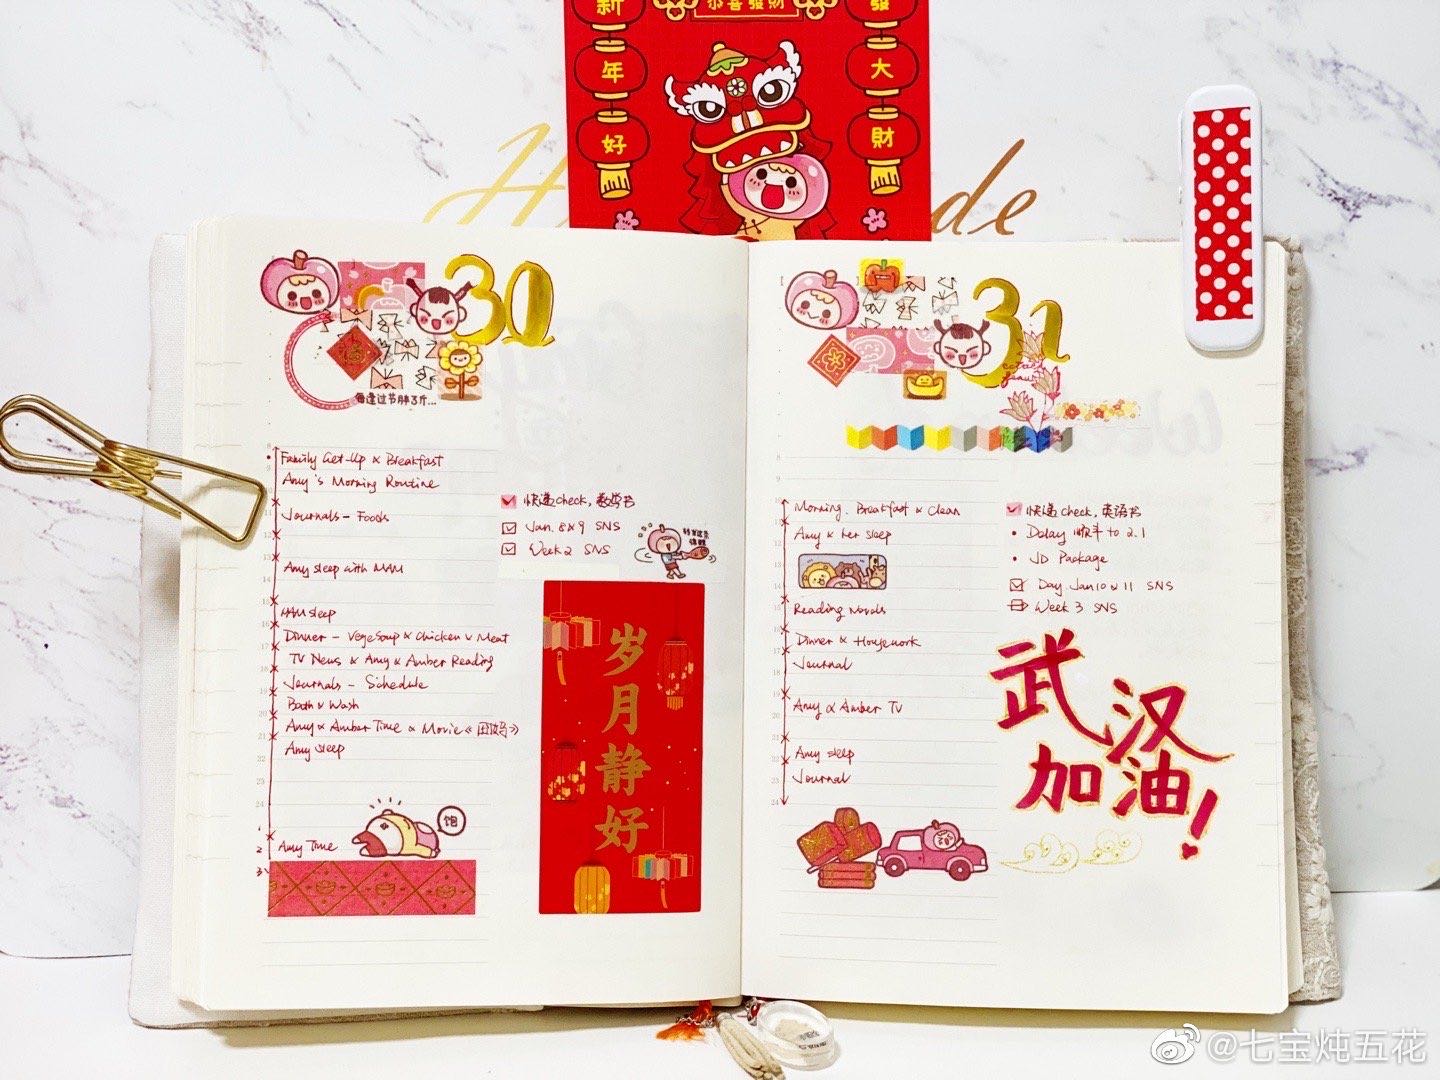 新年好
恭喜發財
發大財
30
每逢过节胖3斤...
Family Get-Up & Breakfast
Amy's Morning Routine
Journals - Foods
Amy sleep with MAM
MAM sleep
Dinner - VegeSoup & Chicken & Meat
TV News & Amy & Amber Reading
Journals - Schedule
Bath & Wash
Amy & Amber Time & Movie《囧妈》
Amy sleep
饱
Amy Time
快递 check, 数学书
Jan. 8 & 9 SNS
Week 2 SNS
岁月静好
31
Morning. Breakfast & Clean
Amy & her sleep
Reading Novels
Dinner & Housework
Journal
Amy & Amber TV
Amy sleep
Journal
快递 check, 英语书
Delay 顺丰 to 2.1
JD Package
Day Jan 10 & 11 SNS
Week 3 SNS
武汉
加油!
de
@七宝炖五花